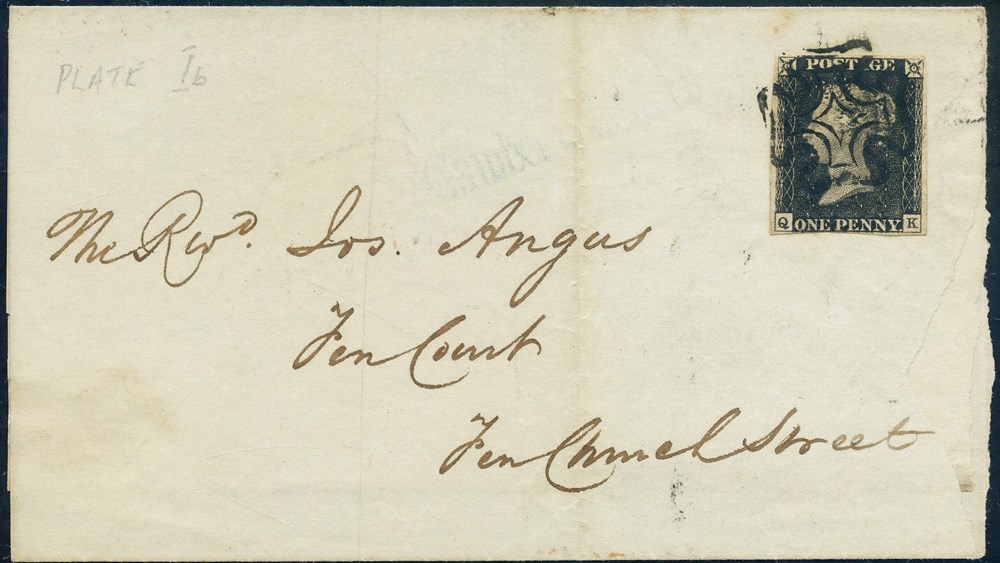 PLATE Ib
POSTAGE
Q ONE PENNY K
The Revd. Jos. Angus
Fen Court
Fen Church Street